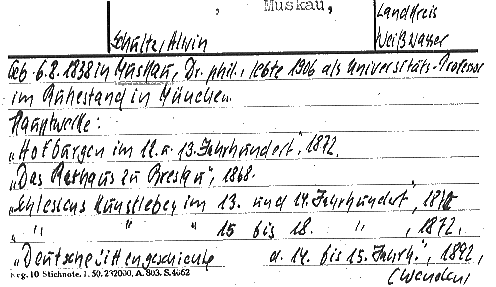 , Muskau,
Landkreis
Schultz, Alwin
Weißwasser
Geb. 6.8.1838 in Muskau, Dr. phil., lebte 1906 als Universitäts-Professor
im Ruhestand in München.
Hauptwerke:
„Hofburgen im 12. u. 13. Jahrhundert", 1872.
„Das Rathaus zu Breslau", 1868.
„Schlesiens Kunstleben im 13. und 14. Jahrhundert",
„ " " 15 bis 18. " , 1872.
„Deutsche Sittengeschichte d. 14. bis 15. Jahrh.", 1892,
(Wenden)
Reg. 10 Stichnote. 1. 50. 232000, A. 803. S. 4662